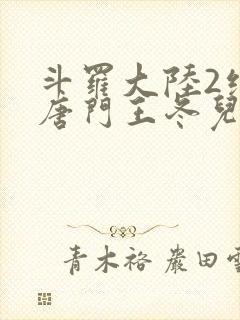 斗羅大陸2
唐門王冬兒
青木裕 嚴田